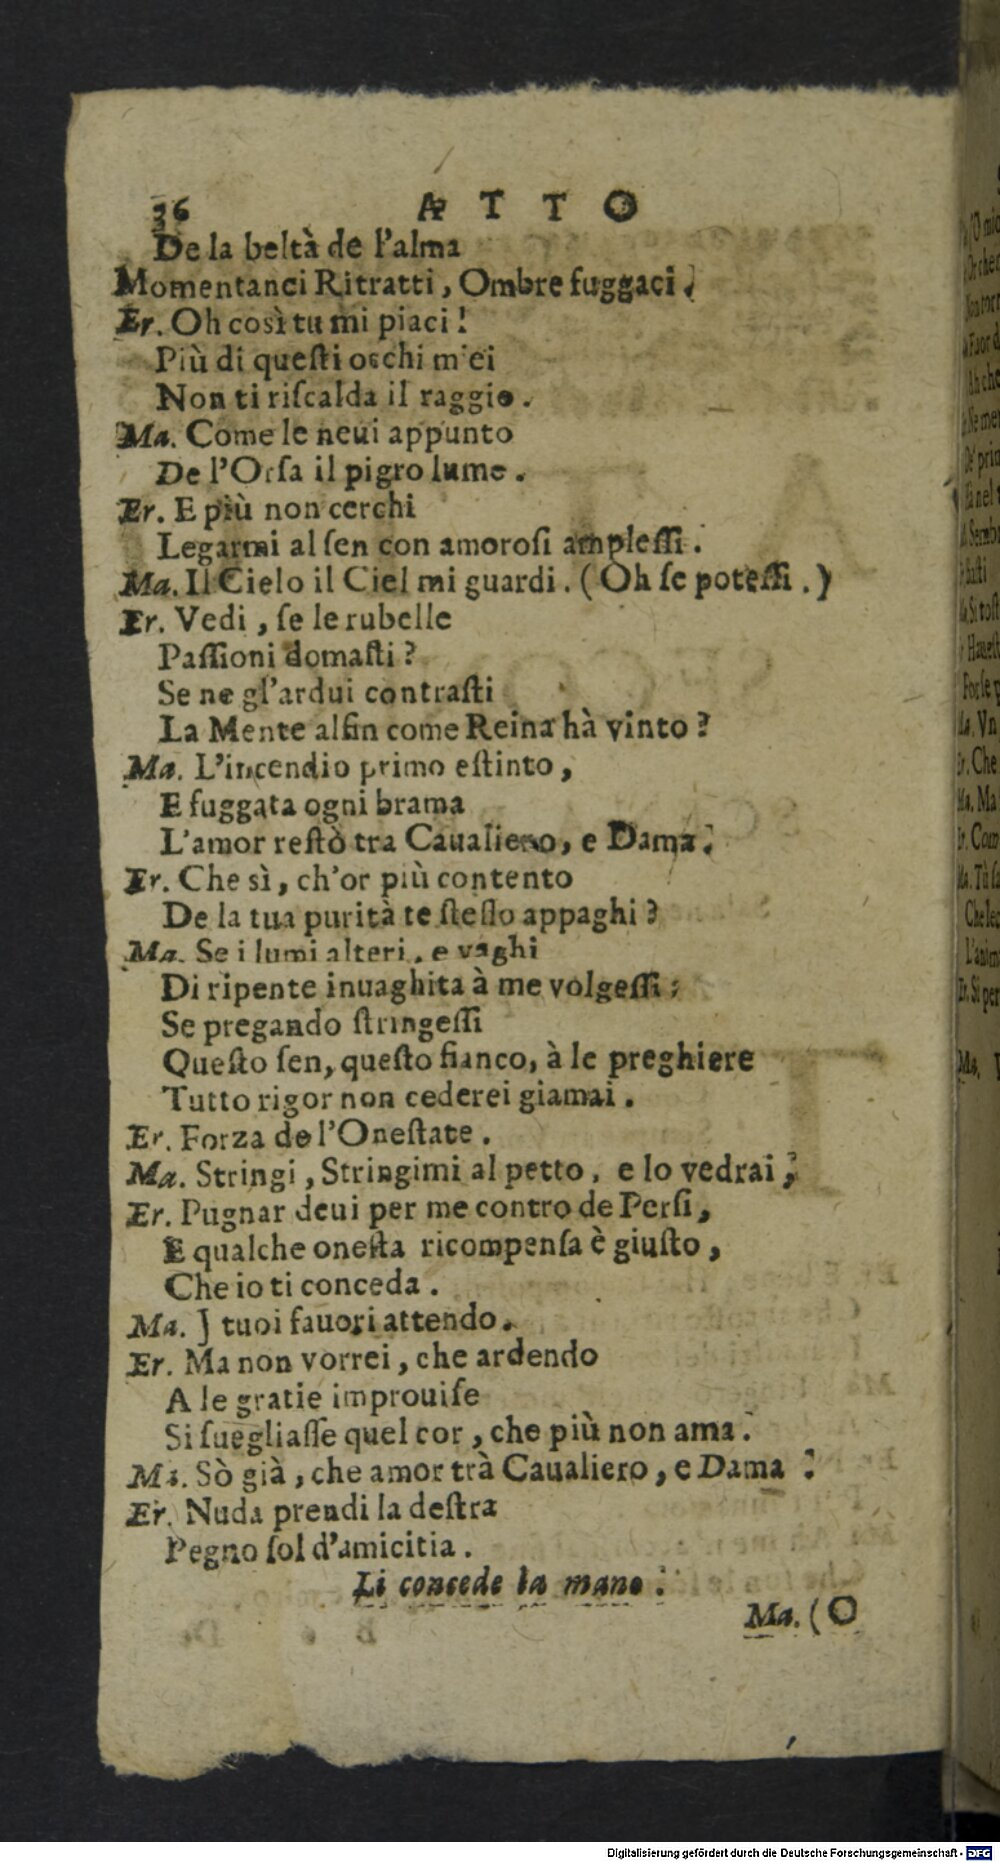 36 ATTO
De la beltà de l'alma
Momentanei Ritratti, Ombre fuggaci.
Er. Oh così tu mi piaci!
Più di queſti occhi miei
Non ti riſcalda il raggio.
Ma. Come le neui appunto
De l'Orſa il pigro lume.
Er. E più non cerchi
Legarmi al ſen con amoroſi ampleſſi.
Ma. Il Cielo il Ciel mi guardi. (Oh ſe poteſſi.)
Er. Vedi, ſe le rubelle
Paſſioni domaſti?
Se ne gl'ardui contraſti
La Mente alfin come Reina hà vinto?
Ma. L'incendio primo eſtinto,
E fuggata ogni brama
L'amor reſtò tra Caualiero, e Dama.
Er. Che sì, ch'or più contento
De la tua purità te ſteſſo appaghi?
Ma. Se i lumi alteri, e vaghi
Di ripente inuaghita à me volgeſſi;
Se pregando ſtringeſſi
Queſto ſen, queſto fianco, à le preghiere
Tutto rigor non cederei giamai.
Er. Forza de l'Oneſtate.
Ma. Stringi, Stringimi al petto, e lo vedrai;
Er. Pugnar deui per me contro de Perſi,
E qualche oneſta ricompenſa è giuſto,
Che io ti conceda.
Ma. I tuoi fauori attendo.
Er. Ma non vorrei, che ardendo
A le gratie improuiſe
Si ſuegliaſſe quel cor, che più non ama.
Ma. Sò già, che amor trà Caualiero, e Dama.
Er. Nuda prendi la deſtra
Pegno ſol d'amicitia.
Li concede la mano.
Ma. (O
Digitalisierung gefördert durch die Deutsche Forschungsgemeinschaft - DFG